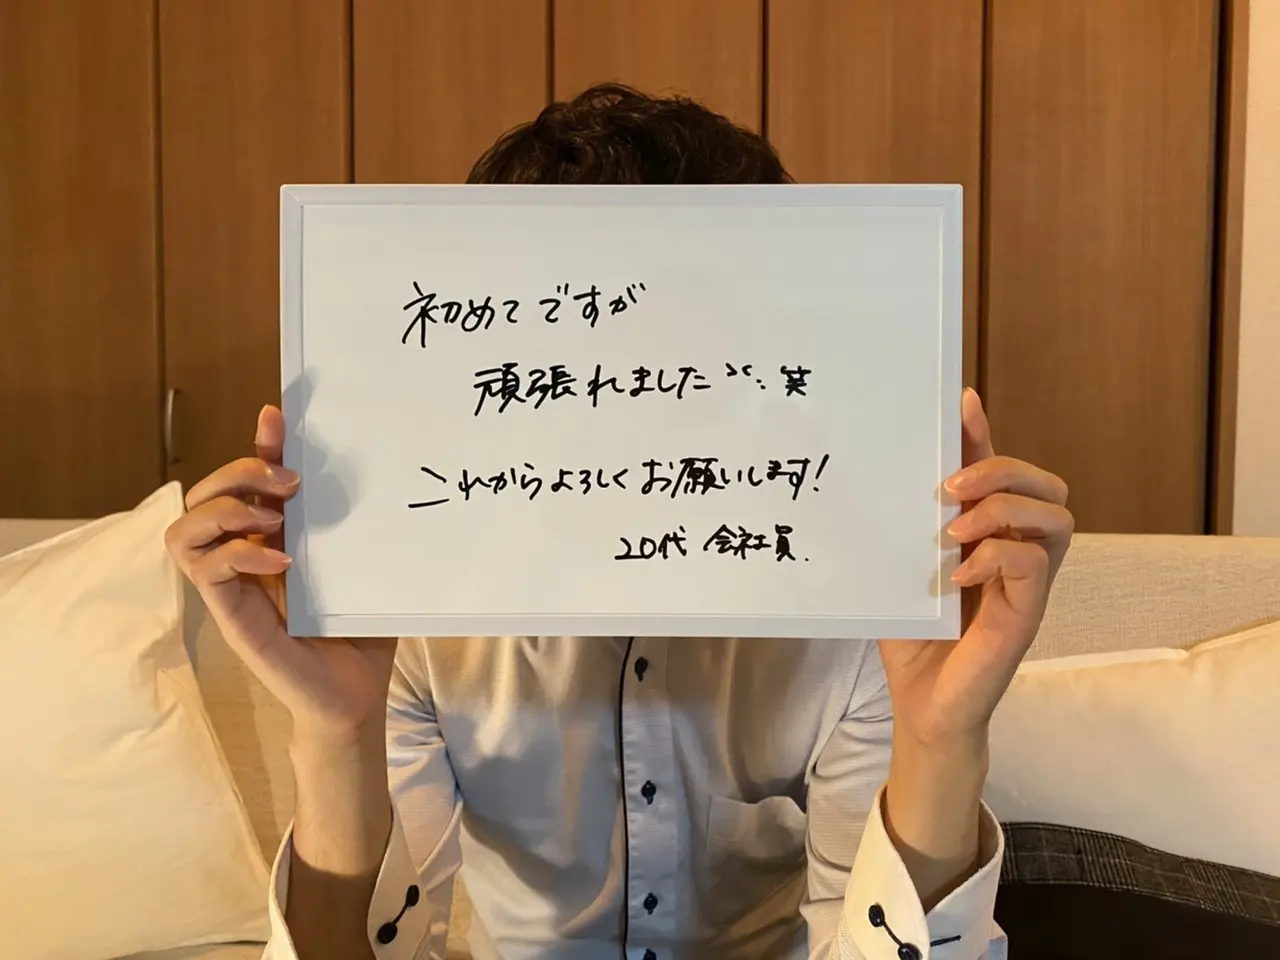 初めてですが
頑張れました 笑
これからよろしくお願いします!
20代 会社員.